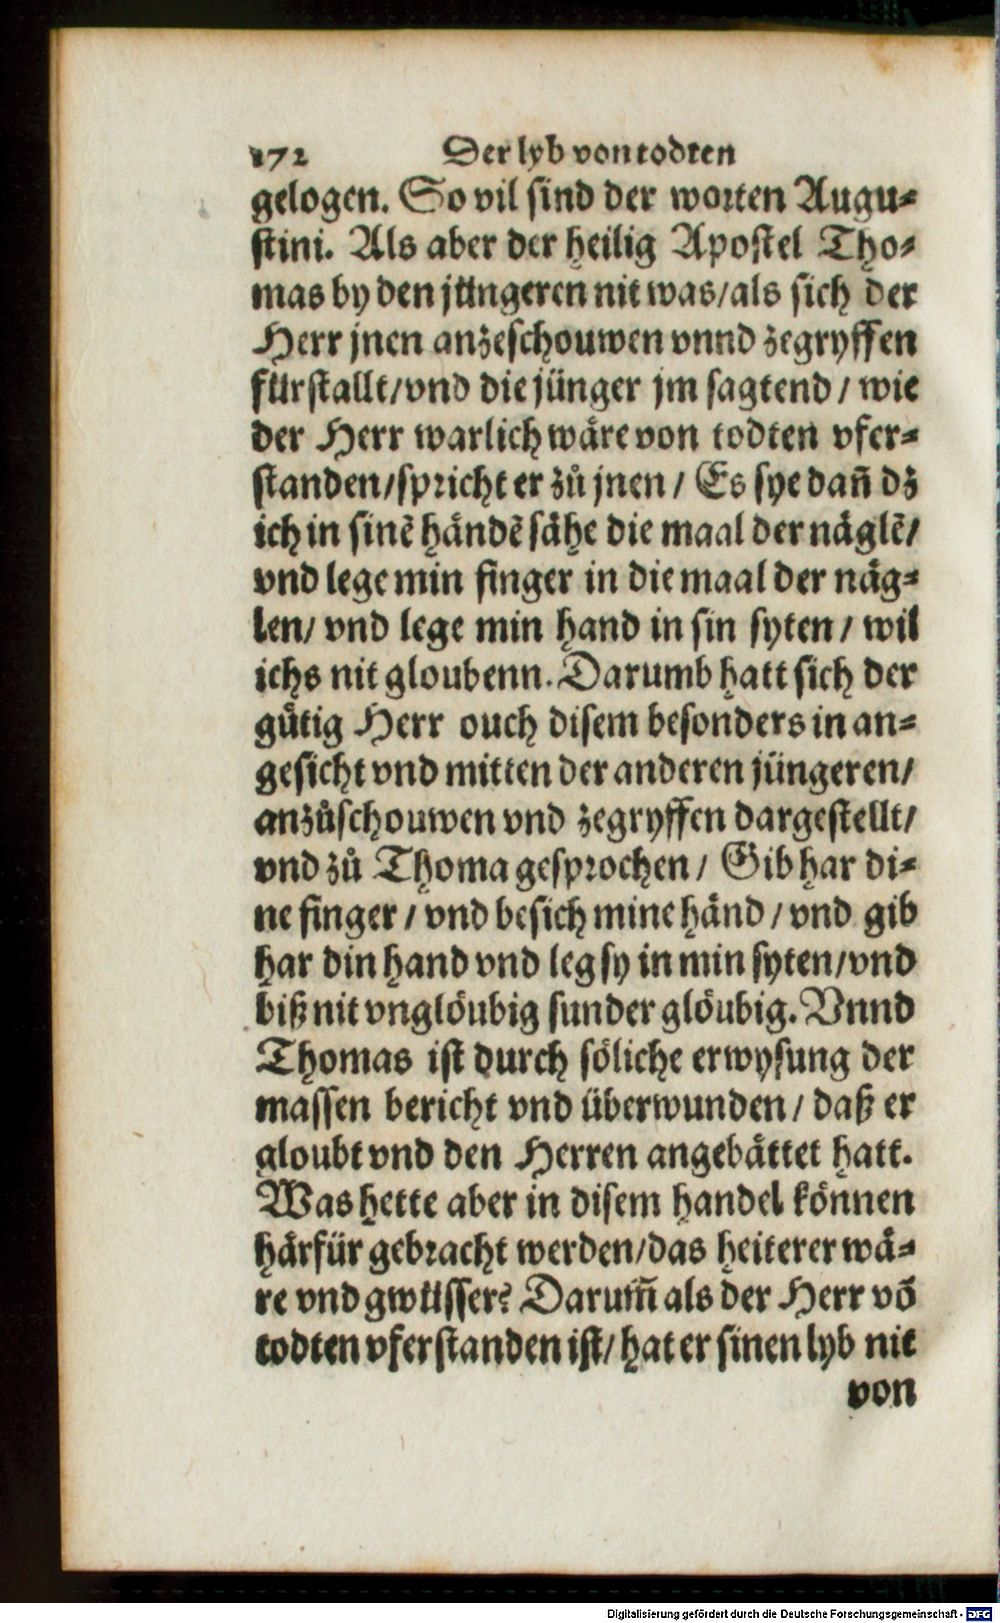 172 Der lyb von todten
gelogen. So vil sind der worten Augu⸗
stini. Als aber der heilig Apostel Tho⸗
mas by den jüngeren nit was/als sich der
Herr jnen anzeschouwen vnnd zegryffen
fürstallt/vnd die jünger jm sagtend/ wie
der Herr warlich wäre von todten vfer⸗
standen/spricht er zů jnen/ Es sye dañ dz
ich in sinẽ håndẽ såhe die maal der näglẽ/
vnd lege min finger in die maal der näg⸗
len/ vnd lege min hand in sin syten/ wil
ichs nit gloubenn. Darumb hatt sich der
gütig Herr ouch disem besonders in an⸗
gesicht vnd mitten der anderen jüngeren/
anzůschouwen vnd zegryffen dargestellt/
vnd zů Thoma gesprochen/ Gib har di⸗
ne finger/ vnd besich mine händ/ vnd gib
har din hand vnd leg sy in min syten/vnd
biß nit vnglöubig sunder glöubig. Vnnd
Thomas ist durch söliche erwysung der
massen bericht vnd überwunden/ daß er
gloubt vnd den Herren angebättet hatt.
Was hette aber in disem handel können
härfür gebracht werden/das heiterer wä⸗
re vnd gwüsser? Darum̃ als der Herr võ
todten vferstanden ist/ hat er sinen lyb nit
von
Digitalisierung gefördert durch die Deutsche Forschungsgemeinschaft - DFG